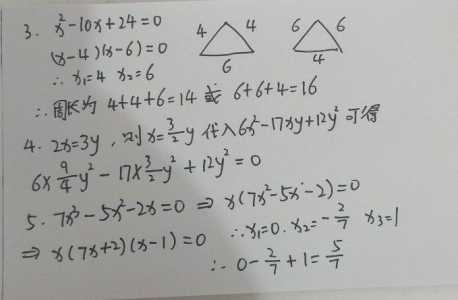 3. x²-10x+24=0
(x-4)(x-6)=0
∴ x₁=4 x₂=6
4 4 6
6 6 4
∴ 周长为 4+4+6=14 或 6+6+4=16
4. 2x=3y, 则 x=3/2y 代入6x²-17xy+12y² 可得
6×9/4y²-17×3/2y²+12y²=0
5. 7x³-5x²-2x=0 ⇒ x(7x²-5x-2)=0
⇒ x(7x+2)(x-1)=0 ∴x₁=0. x₂=-2/7 x₃=1
∴ 0-2/7+1=5/7